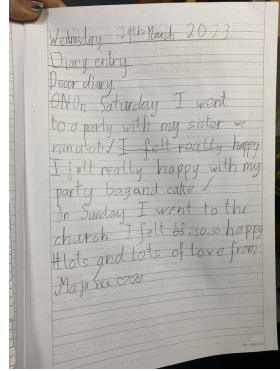 Wednesday 29th March 2023
Diary entry
Dear diary
On Saturday I went
to a party with my sister we
ran alot. I felt really happy
I felt really happy with my
party bag and cake.
On Sunday I went to the
church I felt so.so.so happy
lots and lots of love from
Maja xxx